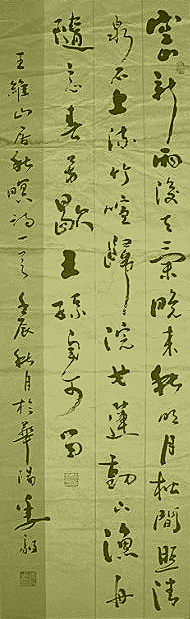 空山新雨後天氣晚來秋明月松間照清
泉石上流竹喧歸浣女蓮動下漁舟
隨意春芳歇王孫自可留
王維山居秋暝詩一首壬辰秋月於華陽